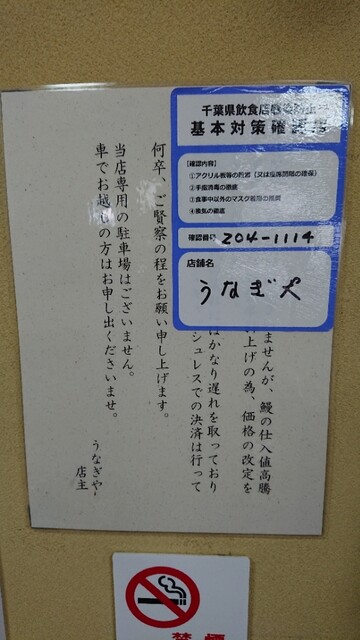 千葉県飲食店感染防止
基本対策確認店
【確認内容】
①アクリル板等の設置(又は座席間隔の確保)
②手指消毒の徹底
③食事中以外のマスク着用の推奨
④換気の徹底
確認番号 204-1114
店舗名
うなぎ犬
ませんが、鰻の仕入値高騰
い上げの為、価格の改定を
はかなり遅れを取っており
シュレスでの決済は行って
何卒、ご賢察の程をお願い申し上げます。
当店専用の駐車場はございません。
車でお越しの方はお申し出くださいませ。
うなぎや
店主
禁煙